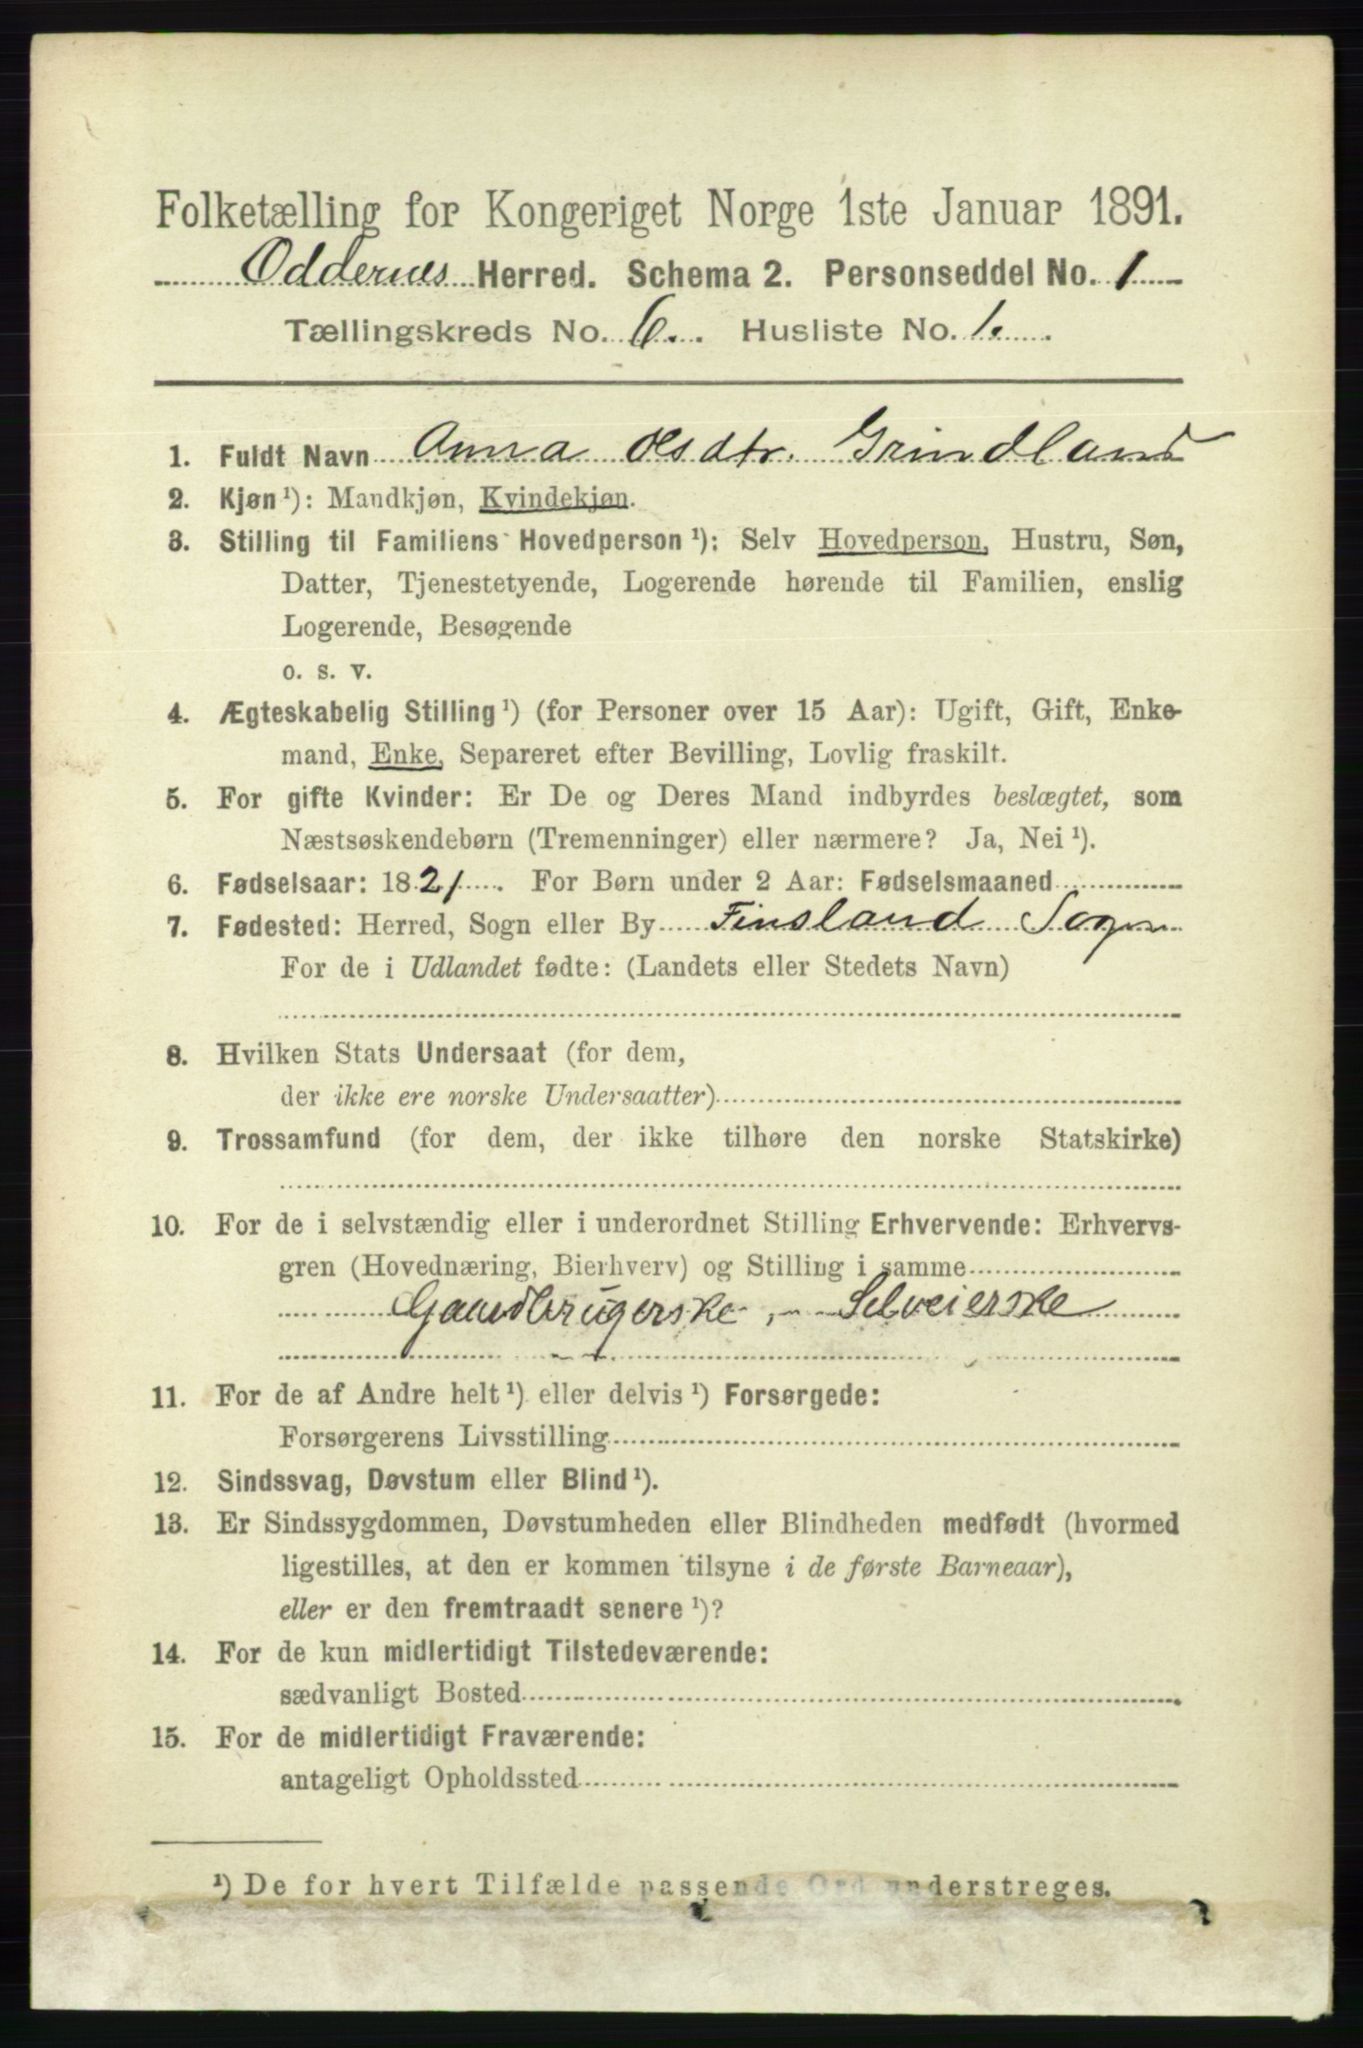 Folketælling for Kongeriget Norge 1ste Januar 1891.
Oddernes Herred. Schema 2. Personseddel No. 1
Tællingskreds No. 6. Husliste No. 1.
1. Fuldt Navn Anna Olsdtr. Grindland
2. Kjøn¹): Mandkjøn, Kvindekjøn.
3. Stilling til Familiens Hovedperson¹): Selv Hovedperson, Hustru, Søn,
Datter, Tjenestetyende, Logerende hørende til Familien, enslig
Logerende, Besøgende
o. s. v.
4. Ægteskabelig Stilling¹) (for Personer over 15 Aar): Ugift, Gift, Enke-
mand, Enke, Separeret efter Bevilling, Lovlig fraskilt.
5. For gifte Kvinder: Er De og Deres Mand indbyrdes beslægtet, som
Næstsøskendebørn (Tremenninger) eller nærmere? Ja, Nei¹).
6. Fødselsaar: 1821. For Børn under 2 Aar: Fødselsmaaned
7. Fødested: Herred, Sogn eller By Finsland Sogn
For de i Udlandet fødte: (Landets eller Stedets Navn)
8. Hvilken Stats Undersaat (for dem,
der ikke ere norske Undersaatter)
9. Trossamfund (for dem, der ikke tilhøre den norske Statskirke)
10. For de i selvstændig eller i underordnet Stilling Erhvervende: Erhvervs-
gren (Hovednæring, Bierhverv) og Stilling i samme
Gaardbrugerske, - Selveierske
11. For de af Andre helt¹) eller delvis¹) Forsørgede:
Forsørgerens Livsstilling
12. Sindssvag, Døvstum eller Blind¹).
13. Er Sindssygdommen, Døvstumheden eller Blindheden medfødt (hvormed
ligestilles, at den er kommen tilsyne i de første Barneaar),
eller er den fremtraadt senere¹)?
14. For de kun midlertidigt Tilstedeværende:
sædvanligt Bosted
15. For de midlertidigt Fraværende:
antageligt Opholdssted
¹) De for hvert Tilfælde passende Ord understreges.